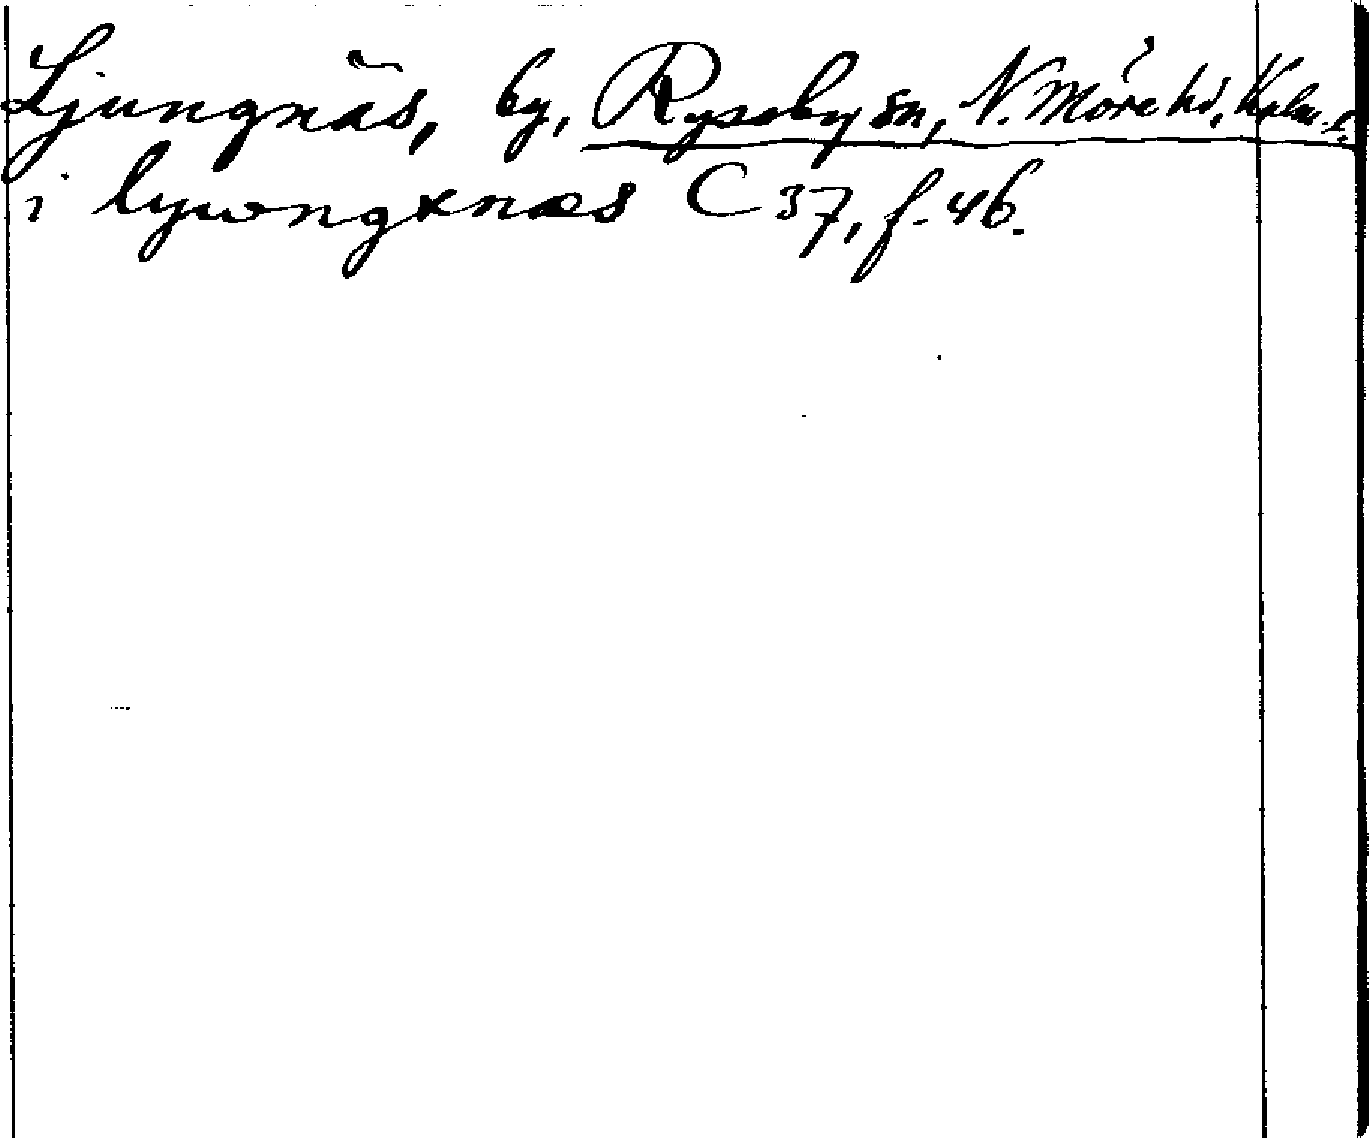 Ljungnäs, by, Ryssby sn, N. Möre hd, Kalm. l.
i lywongxnæs C 37, f. 46.